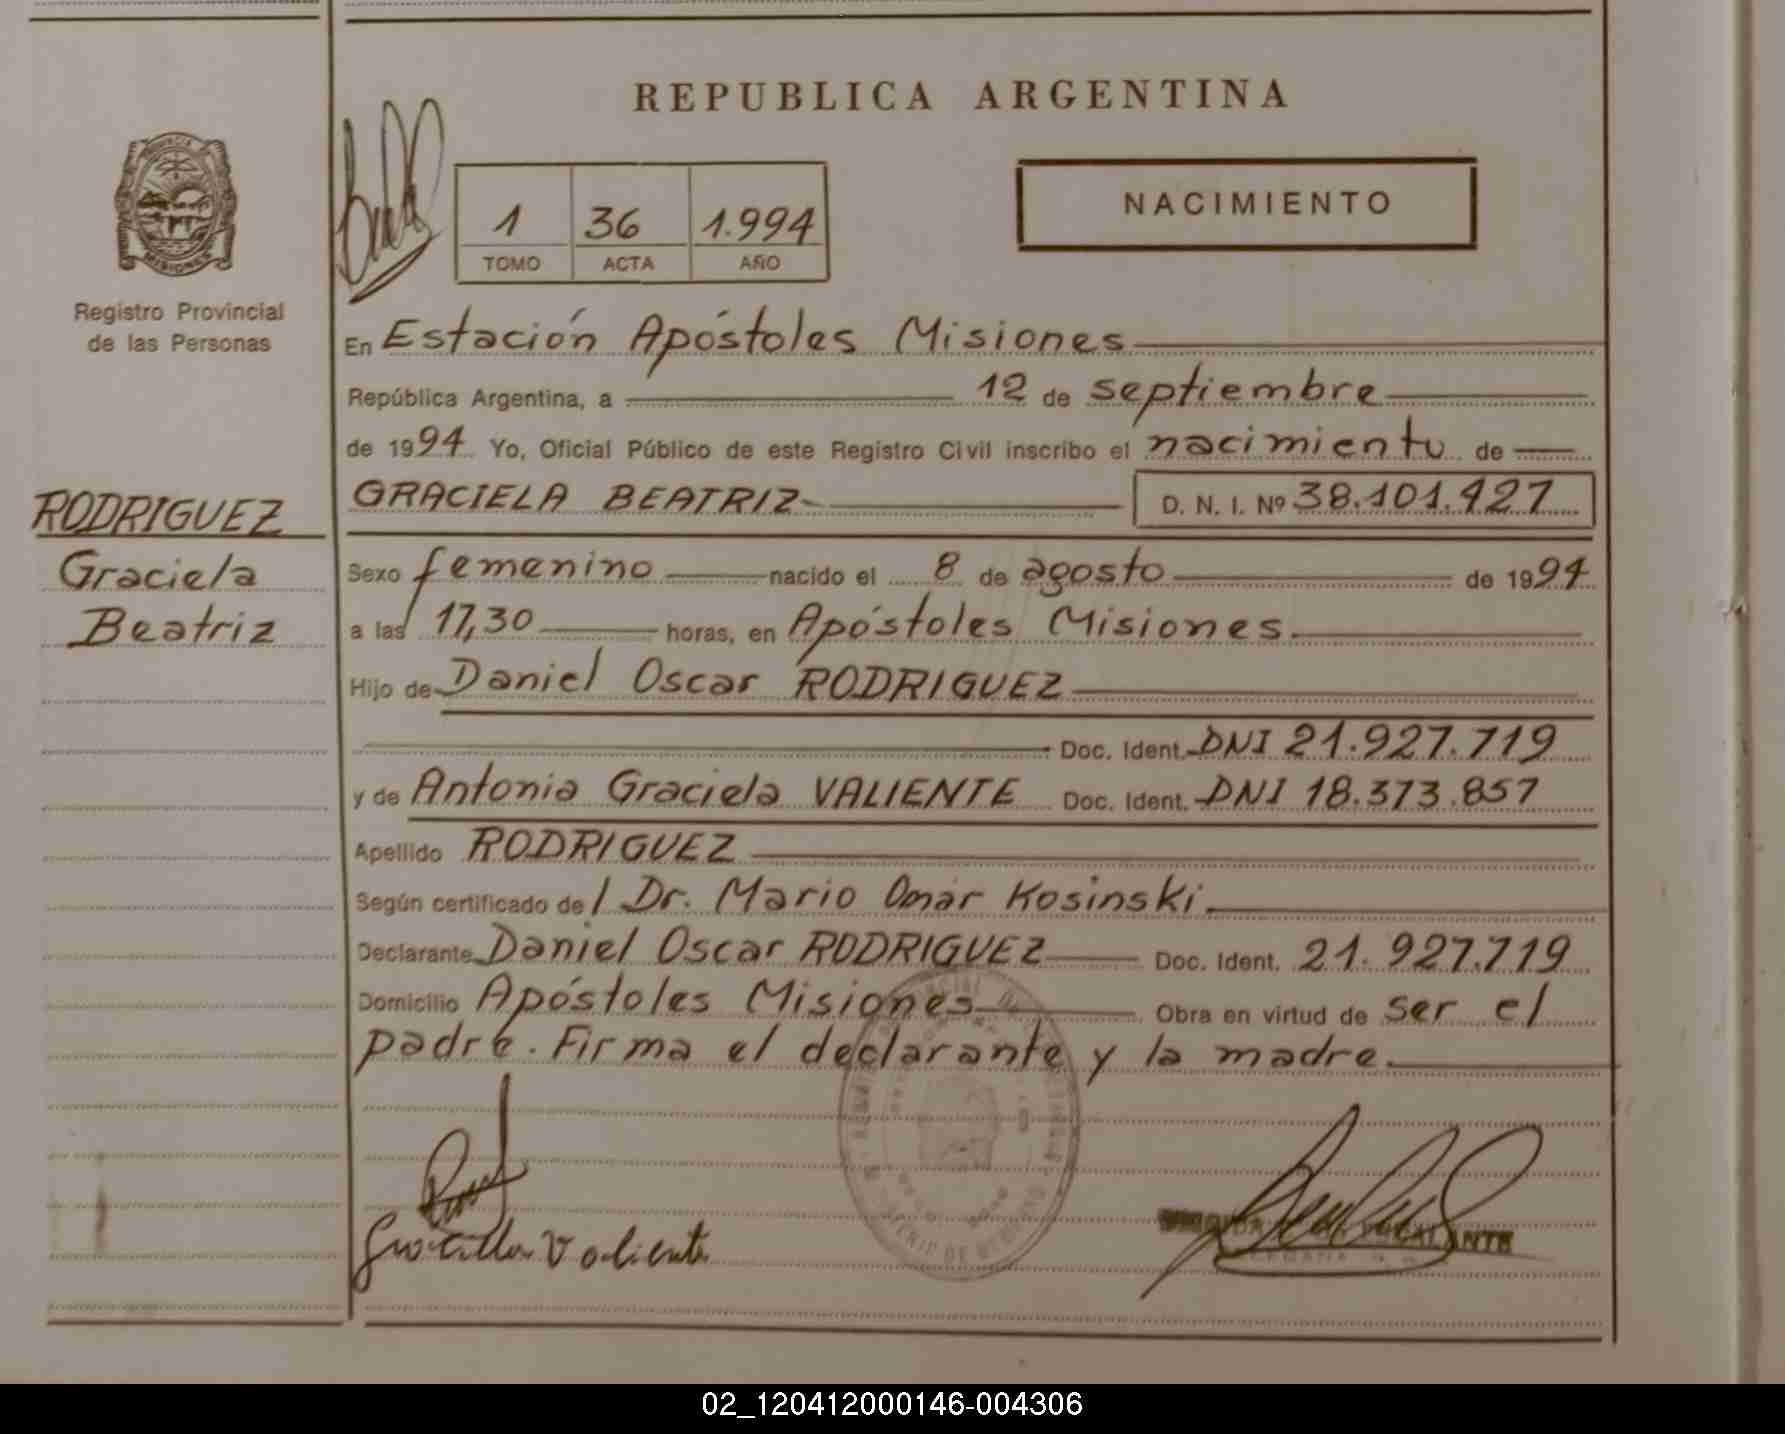 REPUBLICA ARGENTINA
PROVINCIA
MISIONES
Registro Provincial
de las Personas
1 36 1.994
TOMO ACTA AÑO
NACIMIENTO
RODRIGUEZ
Graciela
Beatriz
En Estación Apóstoles Misiones
República Argentina, a 12 de septiembre
de 1994 Yo, Oficial Público de este Registro Civil inscribo el nacimiento de
GRACIELA BEATRIZ D. N. I. Nº 38.101.427
Sexo femenino nacido el 8 de agosto de 1994
a las 17,30 horas, en Apóstoles Misiones.
Hijo de Daniel Oscar RODRIGUEZ
Doc. Ident. DNI 21.927.719
y de Antonia Graciela VALIENTE Doc. Ident. DNI 18.373.857
Apellido RODRIGUEZ
Según certificado de / Dr. Mario Omar Kosinski
Declarante Daniel Oscar RODRIGUEZ Doc. Ident. 21.927.719
Domicilio Apóstoles Misiones Obra en virtud de ser el
padre. Firma el declarante y la madre.
Graciela Valiente
02_120412000146-004306